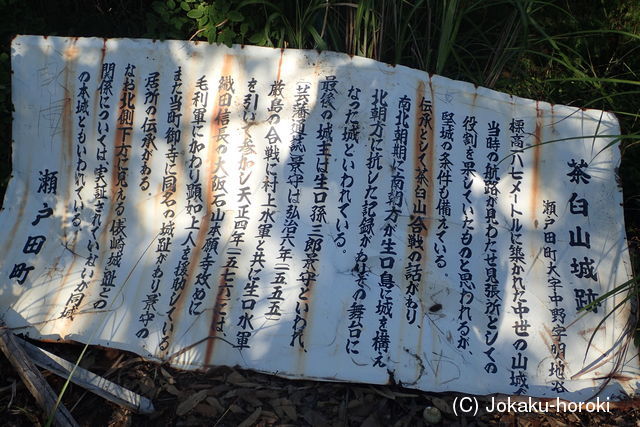 茶臼山城跡
瀬戸田町大字中野字明地谷
標高八七メートルに築かれた中世の山城で
当時の航路が見わたせ見張所としての
役割を果していたものと思われるが、
堅城の条件も備えている。
伝承として茶臼山合戦の話があり、
南北朝期に南朝方が生口島に城を構え
北朝方に抗した記録がありその舞台に
なった城といわれている。
最後の城主は生口孫三郎景守といわれ、
(芸藩通誌)景守は弘治六年(一五五五)
厳島の合戦に村上水軍と共に生口水軍
を引いて参加し天正四年(一五七六)には
織田信長の大阪石山本願寺攻めに
毛利軍にかわり顕如上人を援助している。
また当町御寺に同名の城趾があり景守の
居所の伝承がある。
なお北側下方に見える俵崎城趾との
関係については実証されていないが同城
の本城ともいわれている。
瀬戸田町
(C) Jokaku-horoki